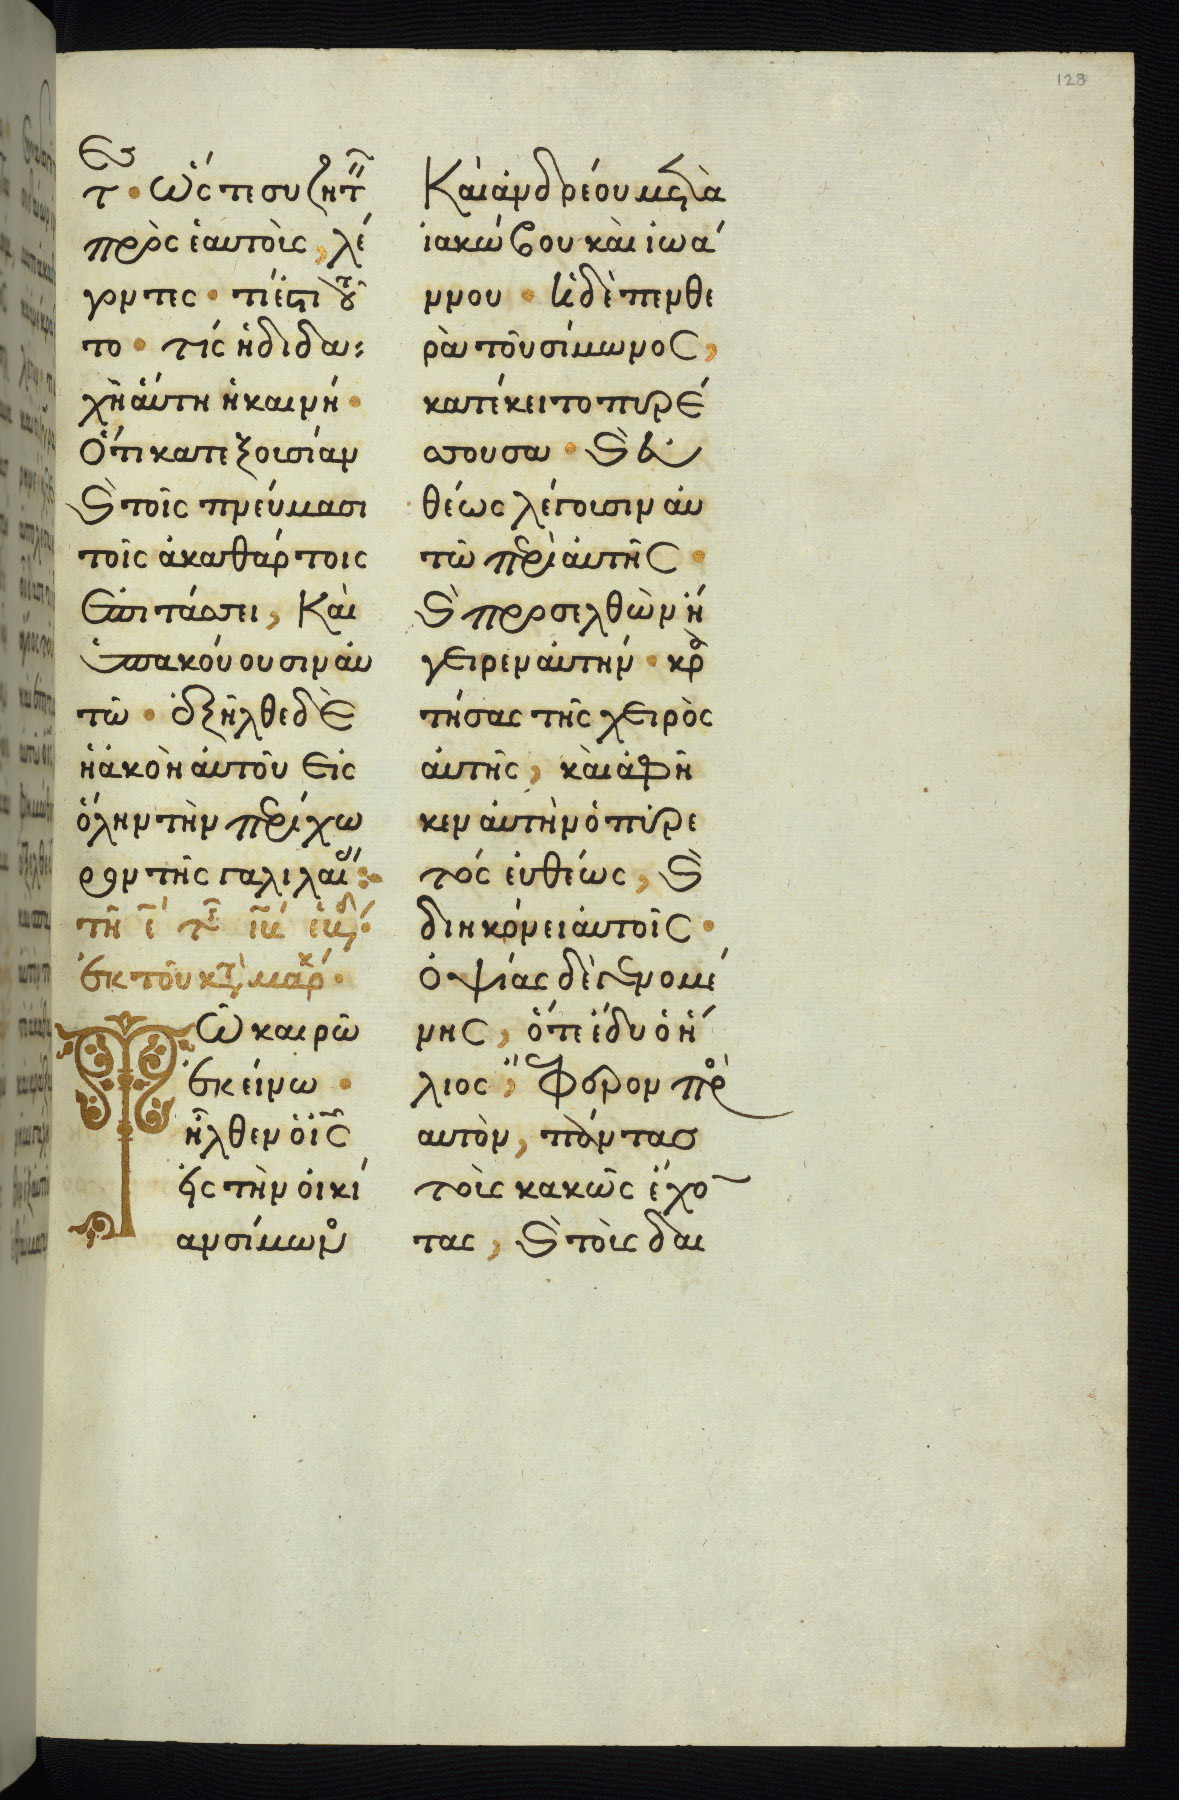 128
ες
τ · ὥστε συζητ
πρὸς ἑαυτοὺς, λέ
γοντες · τί ἐστι τοῦ
το · τίς ἡ διδα
χὴ ἅυτη ἡ καινή ·
Ὅτι κατεξουσίαν
Ϗ τοῖς πνεύμασι
τοῖς ἀκαθάρτοις
Επιτάσσει, Καὶ
ὑπακούουσιν ἀυ
τῶ · ἐξῆλθε δὲ
ἡ ἀκοὴ ἀυτοῦ εἰς
ὅλην τὴν περίχω
ρον τῆς γαλιλαί
ἐκ τοῦ κτ μάρκ ·
Τῶ καιρῶ
ἐκείνω ·
ἦλθεν ὁ ις
εἰς τὴν οἰκί
αν σίμων
Καὶ ἀνδρέου μετὰ
ιακώβου καὶ ιωά
ννου · ἡ δὲ πενθε
ρὰ τοῦ σίμωνος,
κατέκειτο πυρέ
σσουσα · Ϗ ἐυ
θέως λέγουσιν ἀυ
τῶ περὶ ἀυτῆς ·
Ϗ προσελθὼν ή
γειρεν ἀυτήν · κρα
τήσας τῆς χειρὸς
ἀυτῆς, καὶ ἀφῆ
κεν ἀυτὴν ὁ πυρε
τός ἐυθέως, Ϗ
διηκόνει ἀυτοῖς ·
Ὀψίας δὲ γενομέ
νης, ὅτε ἔδυ ὁ ἥ
λιος, ἔφερον πρ
αυτὸν, πάντας
τοὺς κακῶς ἔχο
τας, Ϗ τοὺς δαι